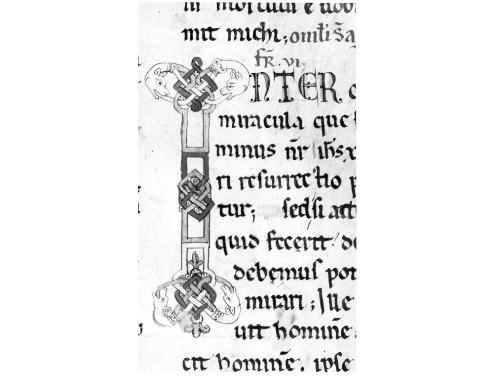 in
michi;
fr̄. vi.
INTER o
miracula que f
minus nr̄ ih̄s x
ri resurrectio p
tur; sedsi att
quid fecerit de
debemus pot
mirari; Ille
uit hominē.
cit hominē. ipse